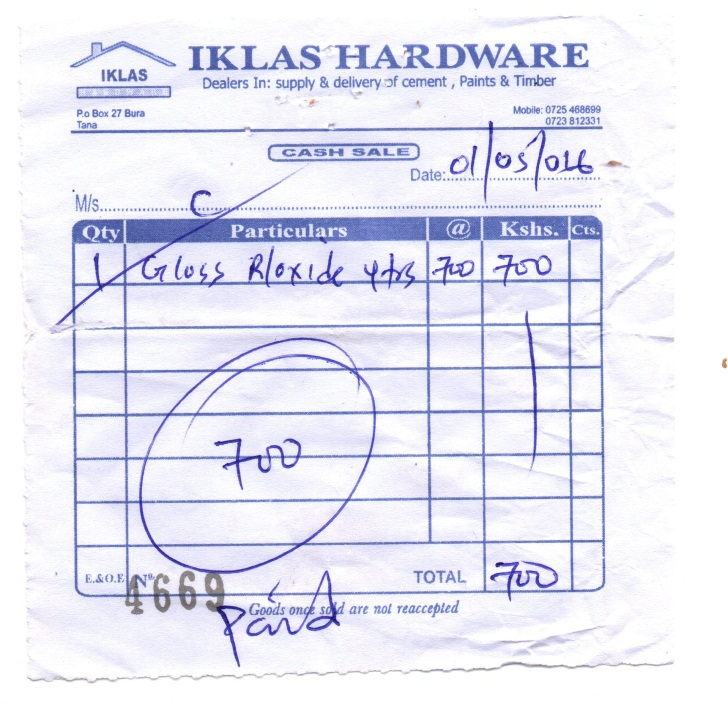 IKLAS HARDWARE
IKLAS
HARDWARE
Dealers In: supply & delivery of cement , Paints & Timber
P.o Box 27 Bura
Tana
Mobile: 0725 468699
0723 812331
CASH SALE
Date: 01/05/016
M/s. C
Qty Particulars @ Kshs. Cts.
1 Gloss R/oxide 4ltrs 700 700
700
E.&O.E Nº 4669 TOTAL 700
Goods once sold are not reaccepted
paid